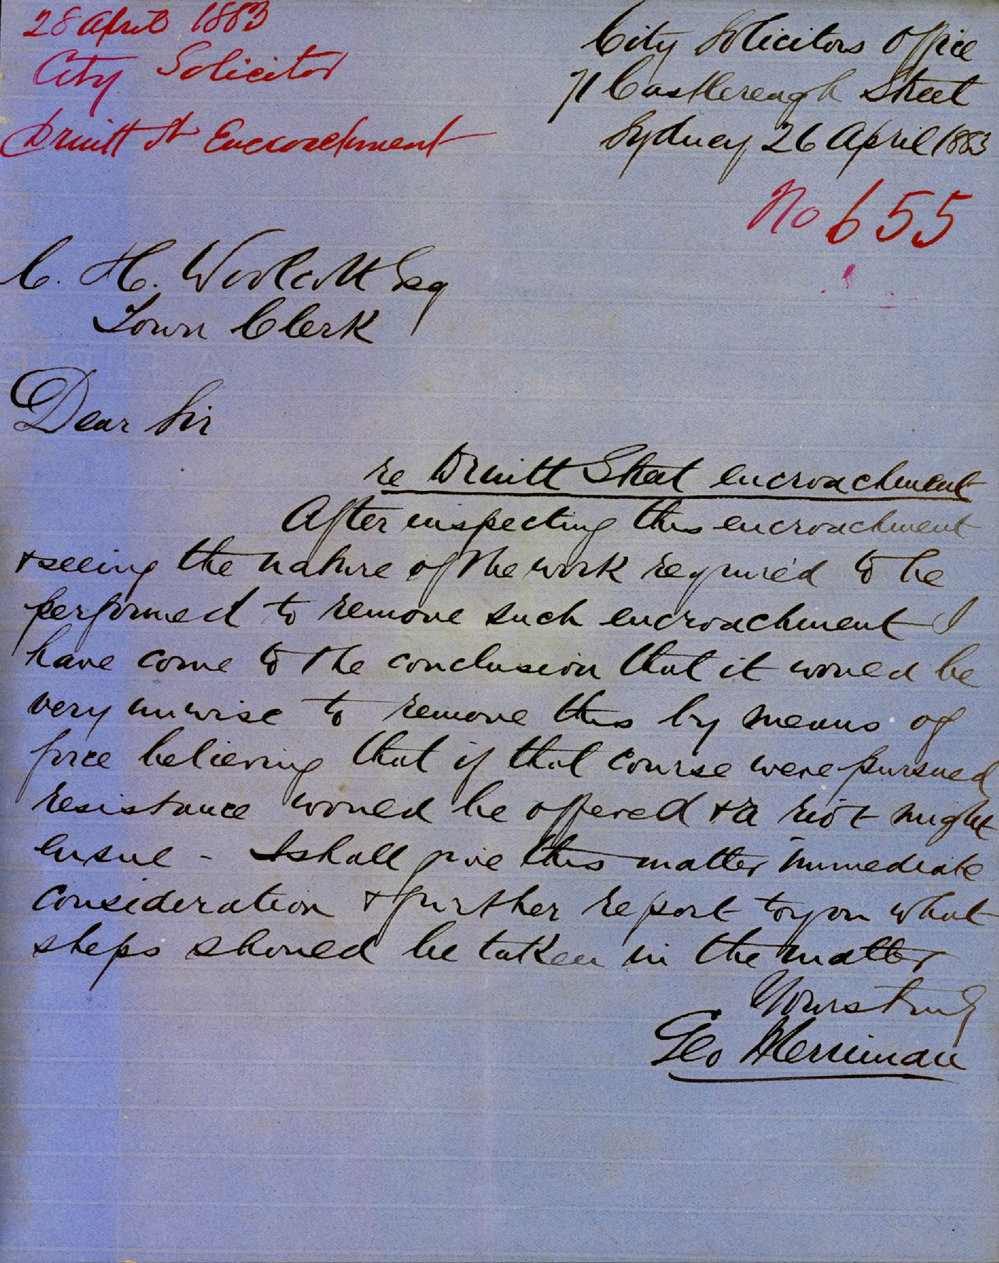 28 April 1883
City Solicitor
Druitt St Encroachment
City Solicitors Office
71 Castlereagh Street
Sydney 26 April 1883
No 655
C. H. Woolcott Esq
Town Clerk
Dear Sir
re Druitt Street encroachment
After inspecting this encroachment
& seeing the nature of the work required to be
performed to remove such encroachment I
have come to the conclusion that it would be
very unwise to remove this by means of
force believing that if that course were pursued
resistance would be offered & a riot might
ensue - I shall give this matter immediate
consideration & further report to you what
steps should be taken in the matter
Yours truly
Geo Merriman